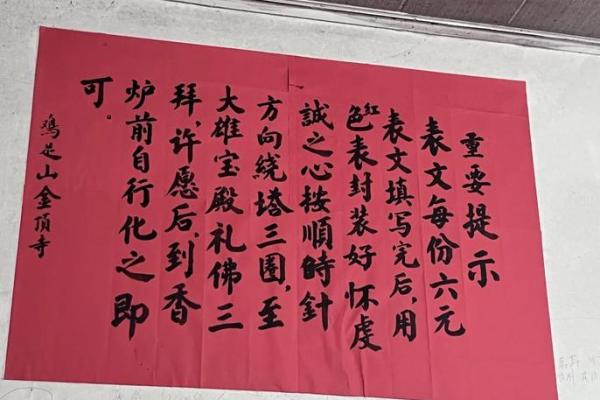 重要提示
表文每份六元
表文填写完后,用
红色表封装好怀虔
誠之心按順時針
方向绕塔三圈,至
大雄宝殿礼佛三
拜,许愿后,到香
炉前自行化之即
可。
鸡足山金頂寺